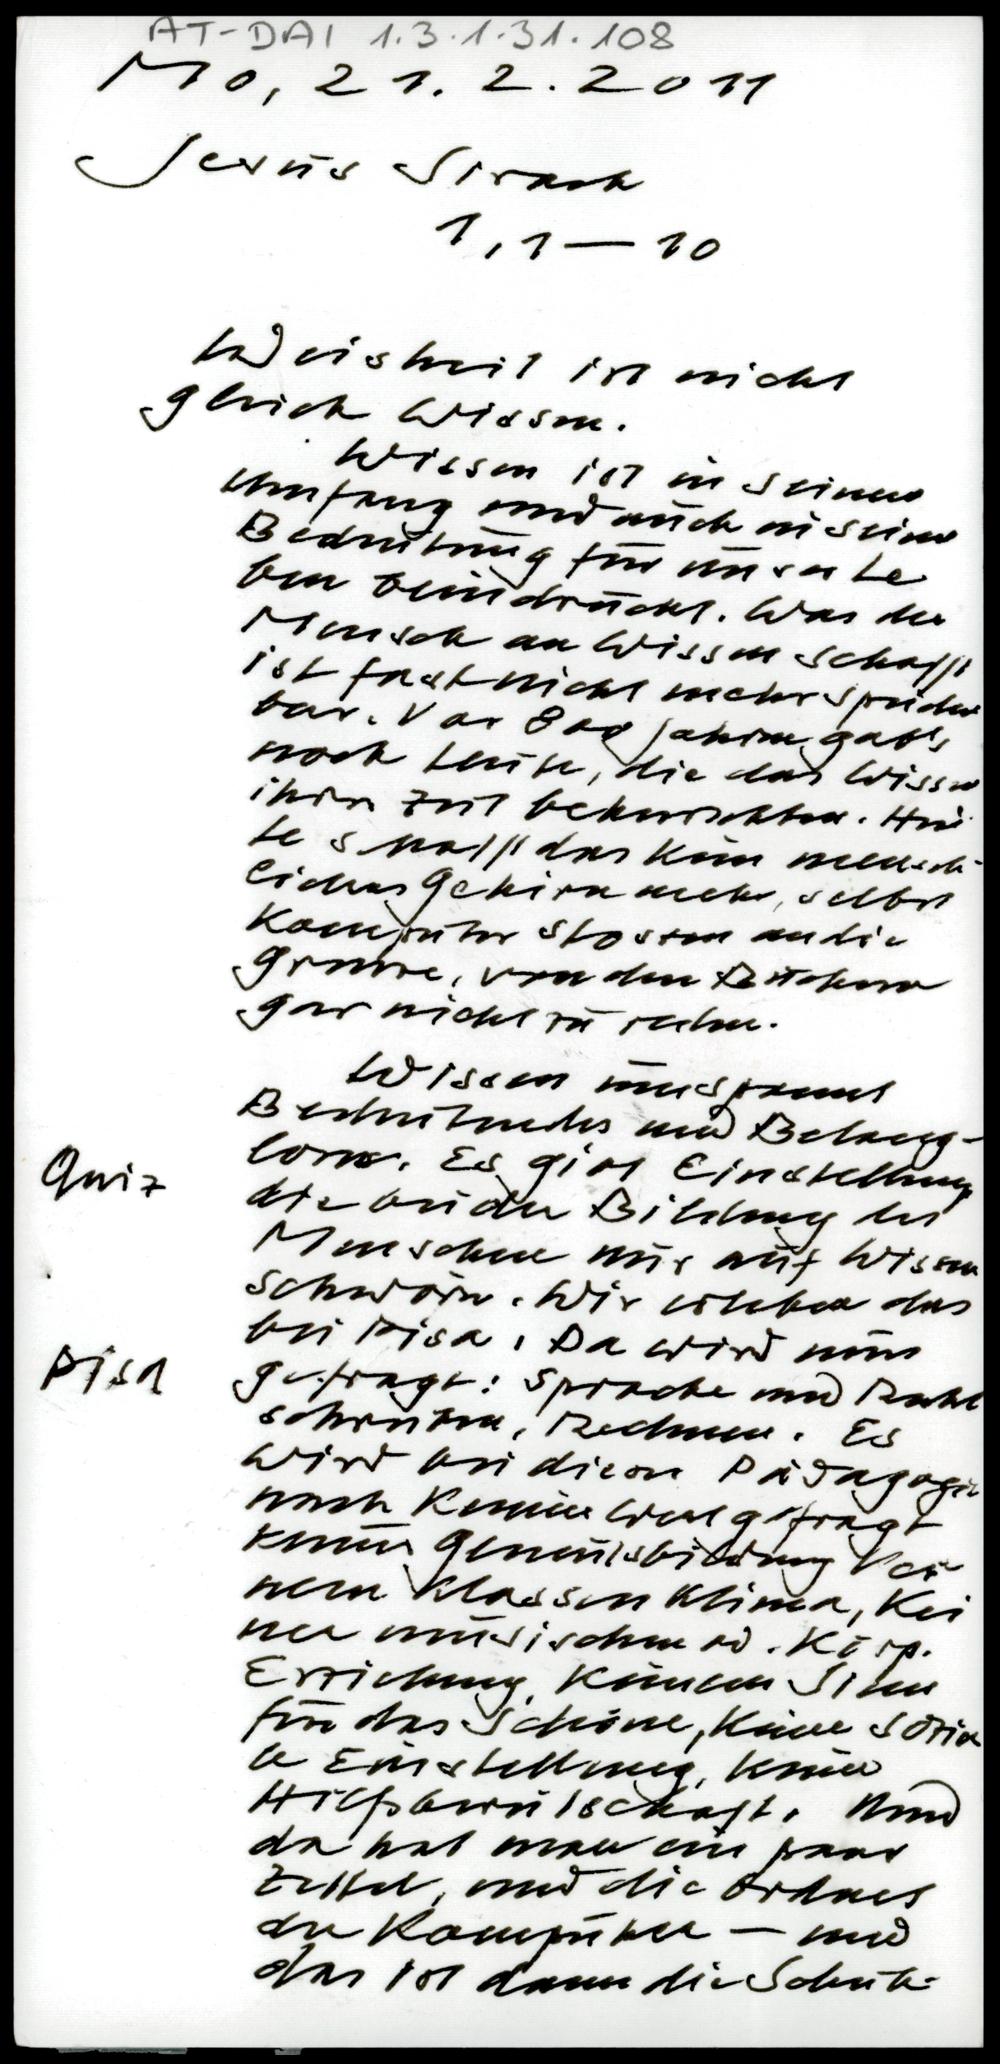 AT-DAI 1.3.1.31.108
Mo, 21.2.2011
Jesus Sirach
1,1–10
Weisheit ist nicht
gleich Wissen.
Wissen ist in seinem
Umfang und auch in seiner
Bedeutung für unser Le
ben beeindruckt. Was der
Mensch an Wissen schafft
ist fast nicht mehr speicher
bar. Vor 800 Jahren gab's
noch Leute, die das Wissen
ihrer Zeit beherrschten. Heu
te schafft das kein mensch
liches Gehirn mehr, selbst
Komputer stossen an die
Grenze, von den Büchern
gar nicht zu reden.
Wissen umspannt
Bedeutendes und Belang-
loses. Es gibt Einstellung
Quiz
die bei der Bildung des
Menschen nur auf Wissen
schwören. Wir erleben das
bei Pisa. Da wird nur
Pisa
gefragt: Sprache und Recht
schreiben, Rechnen. Es
wird bei dieser Pädagogik
nach keinem Wert gefragt
keiner Gemütsbildung kei
nem Klassenklima, kei
ner musischen od. körp.
Erziehung, keinem Sinn
für das Schöne, keine sozia
le Einstellung, keine
Hilfsbereitschaft. Und
da hat man ein paar
Zettel, und die ordnet
der Komputer – und
das ist dann die Schul-